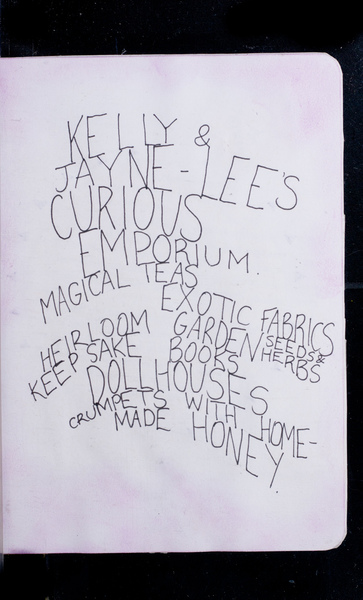 KELLY &
JAYNE-LEE'S
CURIOUS
EMPORIUM.
MAGICAL TEAS
EXOTIC FABRICS
HEIRLOOM GARDEN SEEDS &
HERBS
KEEPSAKE BOOKS
DOLLHOUSES
CRUMPETS WITH HOME-
MADE HONEY.